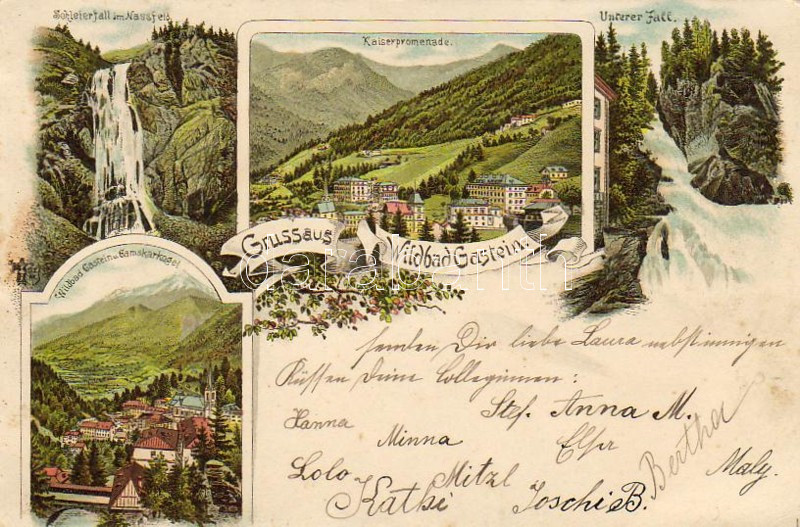 Schleierfall im Nassfeld
Kaiserpromenade.
Unterer Fall.
Gruss aus Wildbad Gastein.
Wildbad Gastein u. Gamskarkogel
senden Dir liebe Laura nebst innigen
Küssen Deine Colleginnen:
Hanna Stef. Anna M.
Minna Elsa
Lolo Mitzl Bertha Maly.
Kathi Joschi B.